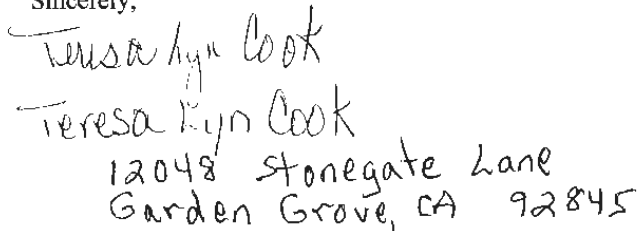 Sincerely,
Teresa Lyn Cook
Teresa Lyn Cook
12048 Stonegate Lane
Garden Grove, CA 92845